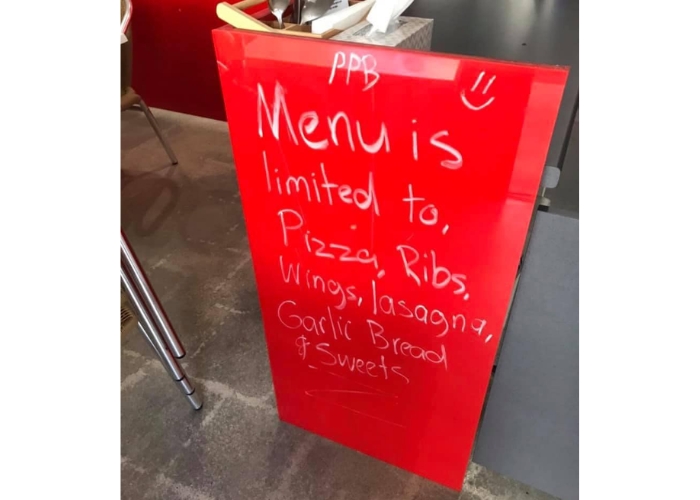 PPB
Menu is
limited to,
Pizza, Ribs,
Wings, lasagna,
Garlic Bread
& Sweets